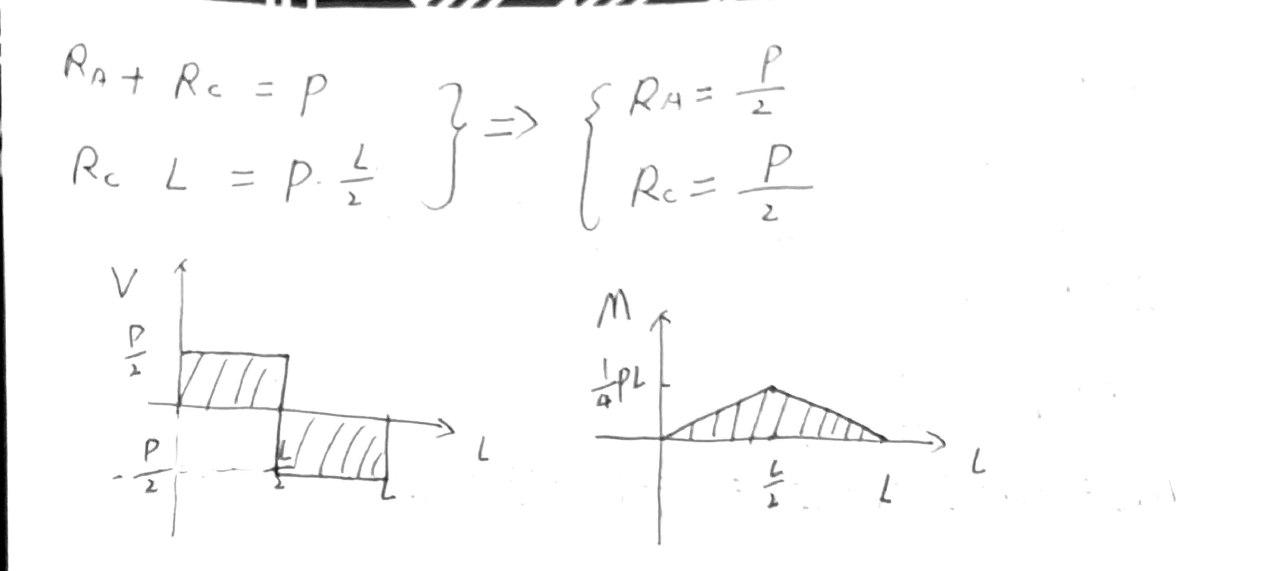 R_A + R_C = P
R_C L = P · L/2
} ⇒ {
R_A = P/2
R_C = P/2
V
P/2
-P/2
L/2
L
L
M
1/4 PL
L/2
L
L